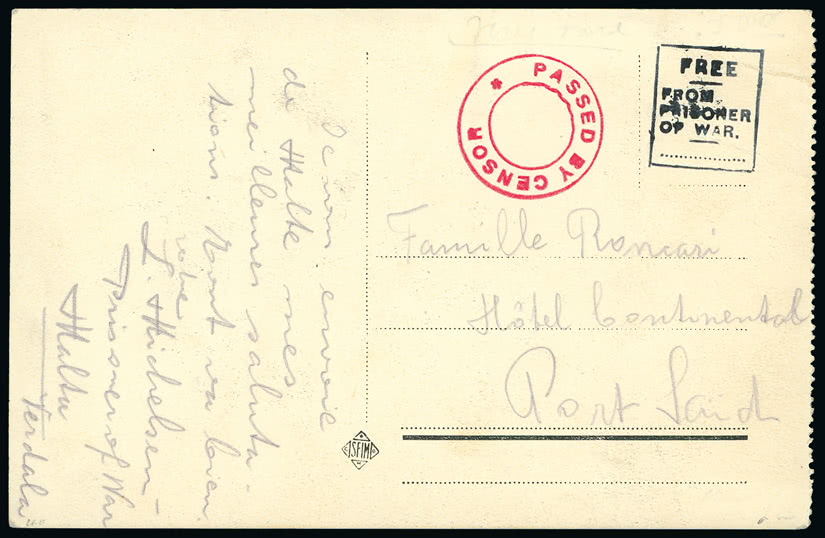 Je vous envoie
de Malte mes
meilleures saluta-
tions. Tout va bien.
votre
L. Michelsen-
Prisoner of War
Malta
Verdala
PASSED BY CENSOR
FREE
FROM
PRISONER
OF WAR.
Famille Roncari
Hôtel Continental
Port Said
SFIM